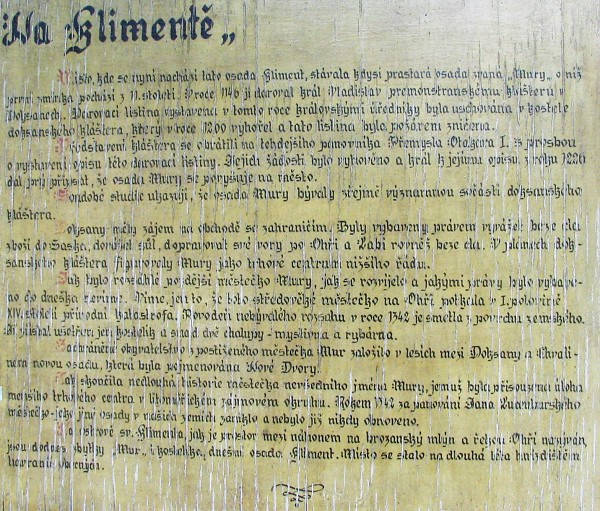 Na Klimentě„
Místo, kde se nyní nachází tato osada Kliment, stávala kdysi prastará osada zvaná „Mury„ o níž
první zmínka pochází z 11. století. V roce 1146 ji daroval král Vladislav premonstránskému klášteru v
Doksanech. Darovací listina vystavená v tomto roce královskými úředníky byla uschována v kostele
doksanského kláštera, který v roce 1200 vyhořel a tato listina byla požárem zničena.
Představení kláštera se obrátili na tehdejšího panovníka Přemysla Otakara I. s prosbou
o vystavení opisu této darovací listiny. Jejich žádosti bylo vyhověno a král k jejímu opisu z roku 1226
dal prý připsat, že osada Mury se povyšuje na město.
Soudobé studie ukazují, že osada Mury bývaly zřejmě významnou součástí doksanského
kláštera.
Doksany měly zájem na obchodě se zahraničím. Byly vybaveny právem vyvážet beze cla
zboží do Saska, dovážet sůl, dopravovat své vory po Ohři a Labi rovněž beze cla. V plánech dok-
sanského kláštera figurovaly Mury jako trhové centrum nižšího řádu.
Jak bylo rozsáhlé pozdější městečko Mury, jak se rozvíjelo a jakými právy bylo vybave-
no do dneška nevíme. Víme jen to, že toto středověké městečko na Ohři potkala v 1. polovině
XIV. století přírodní katastrofa. Povodeň nebývalého rozsahu v roce 1342 je smetla z povrchu zemského.
jen kostelík a snad dvě chalupy - myslivna a rybárna.
Zachráněné obyvatelstvo z postiženého městečka Mur založilo v lesích mezi Doksany a Chvalí-
nem novou osadu, která byla pojmenována Nové Dvory.
Tak skončila nedlouhá historie městečka nevšedního jména Mury, jemuž byla přisouzena úloha
menšího trhového centra v litoměřickém zájmovém okruhu. Rokem 1342 za panování Jana Lucemburského
městečko-jako jiné osady v našich zemích zaniklo a nebylo již nikdy obnoveno.
Na ostrově sv. Klimenta, jak je prostor mezi náhonem na brozanský mlýn a řekou Ohří nazýván,
jsou dodnes zbytky „Mur„ i kostelíka, dnešní osada Kliment. Místo se stalo na dlouhá léta